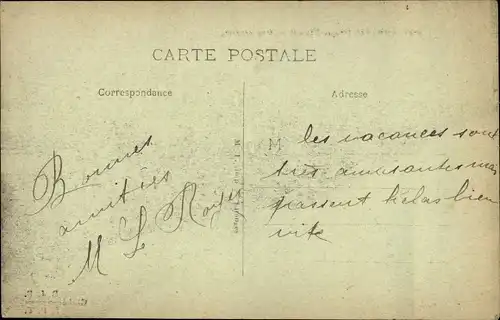 CARTE POSTALE
Correspondance
Adresse
Bonnes
amitiés
M L
M les vacances sont
très amusantes mais
passent hélas bien
vite